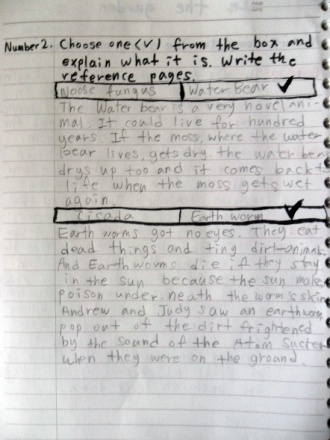 Number 2. Choose one (V) from the box and
explain what it is. Write the
reference pages.
Noose fungus Water bear ✓
The Water bear is a very novel ani-
mal. It could live for hundred
years. If the moss, where the water
bear lives, gets dry. the water bear
drys up too and it comes back t
life when the moss gets wet
again.
Cicada Earth worm ✓
Earth worms got no eyes. They eat
dead things and tiny dirt
And Earth worms die if they stay
in the sun because the sun make
poison under neath the worm's skin
Andrew and Judy saw an earthworm
pop out of the dirt frightened
by the sound of the Atom Sucker
when they were on the ground.